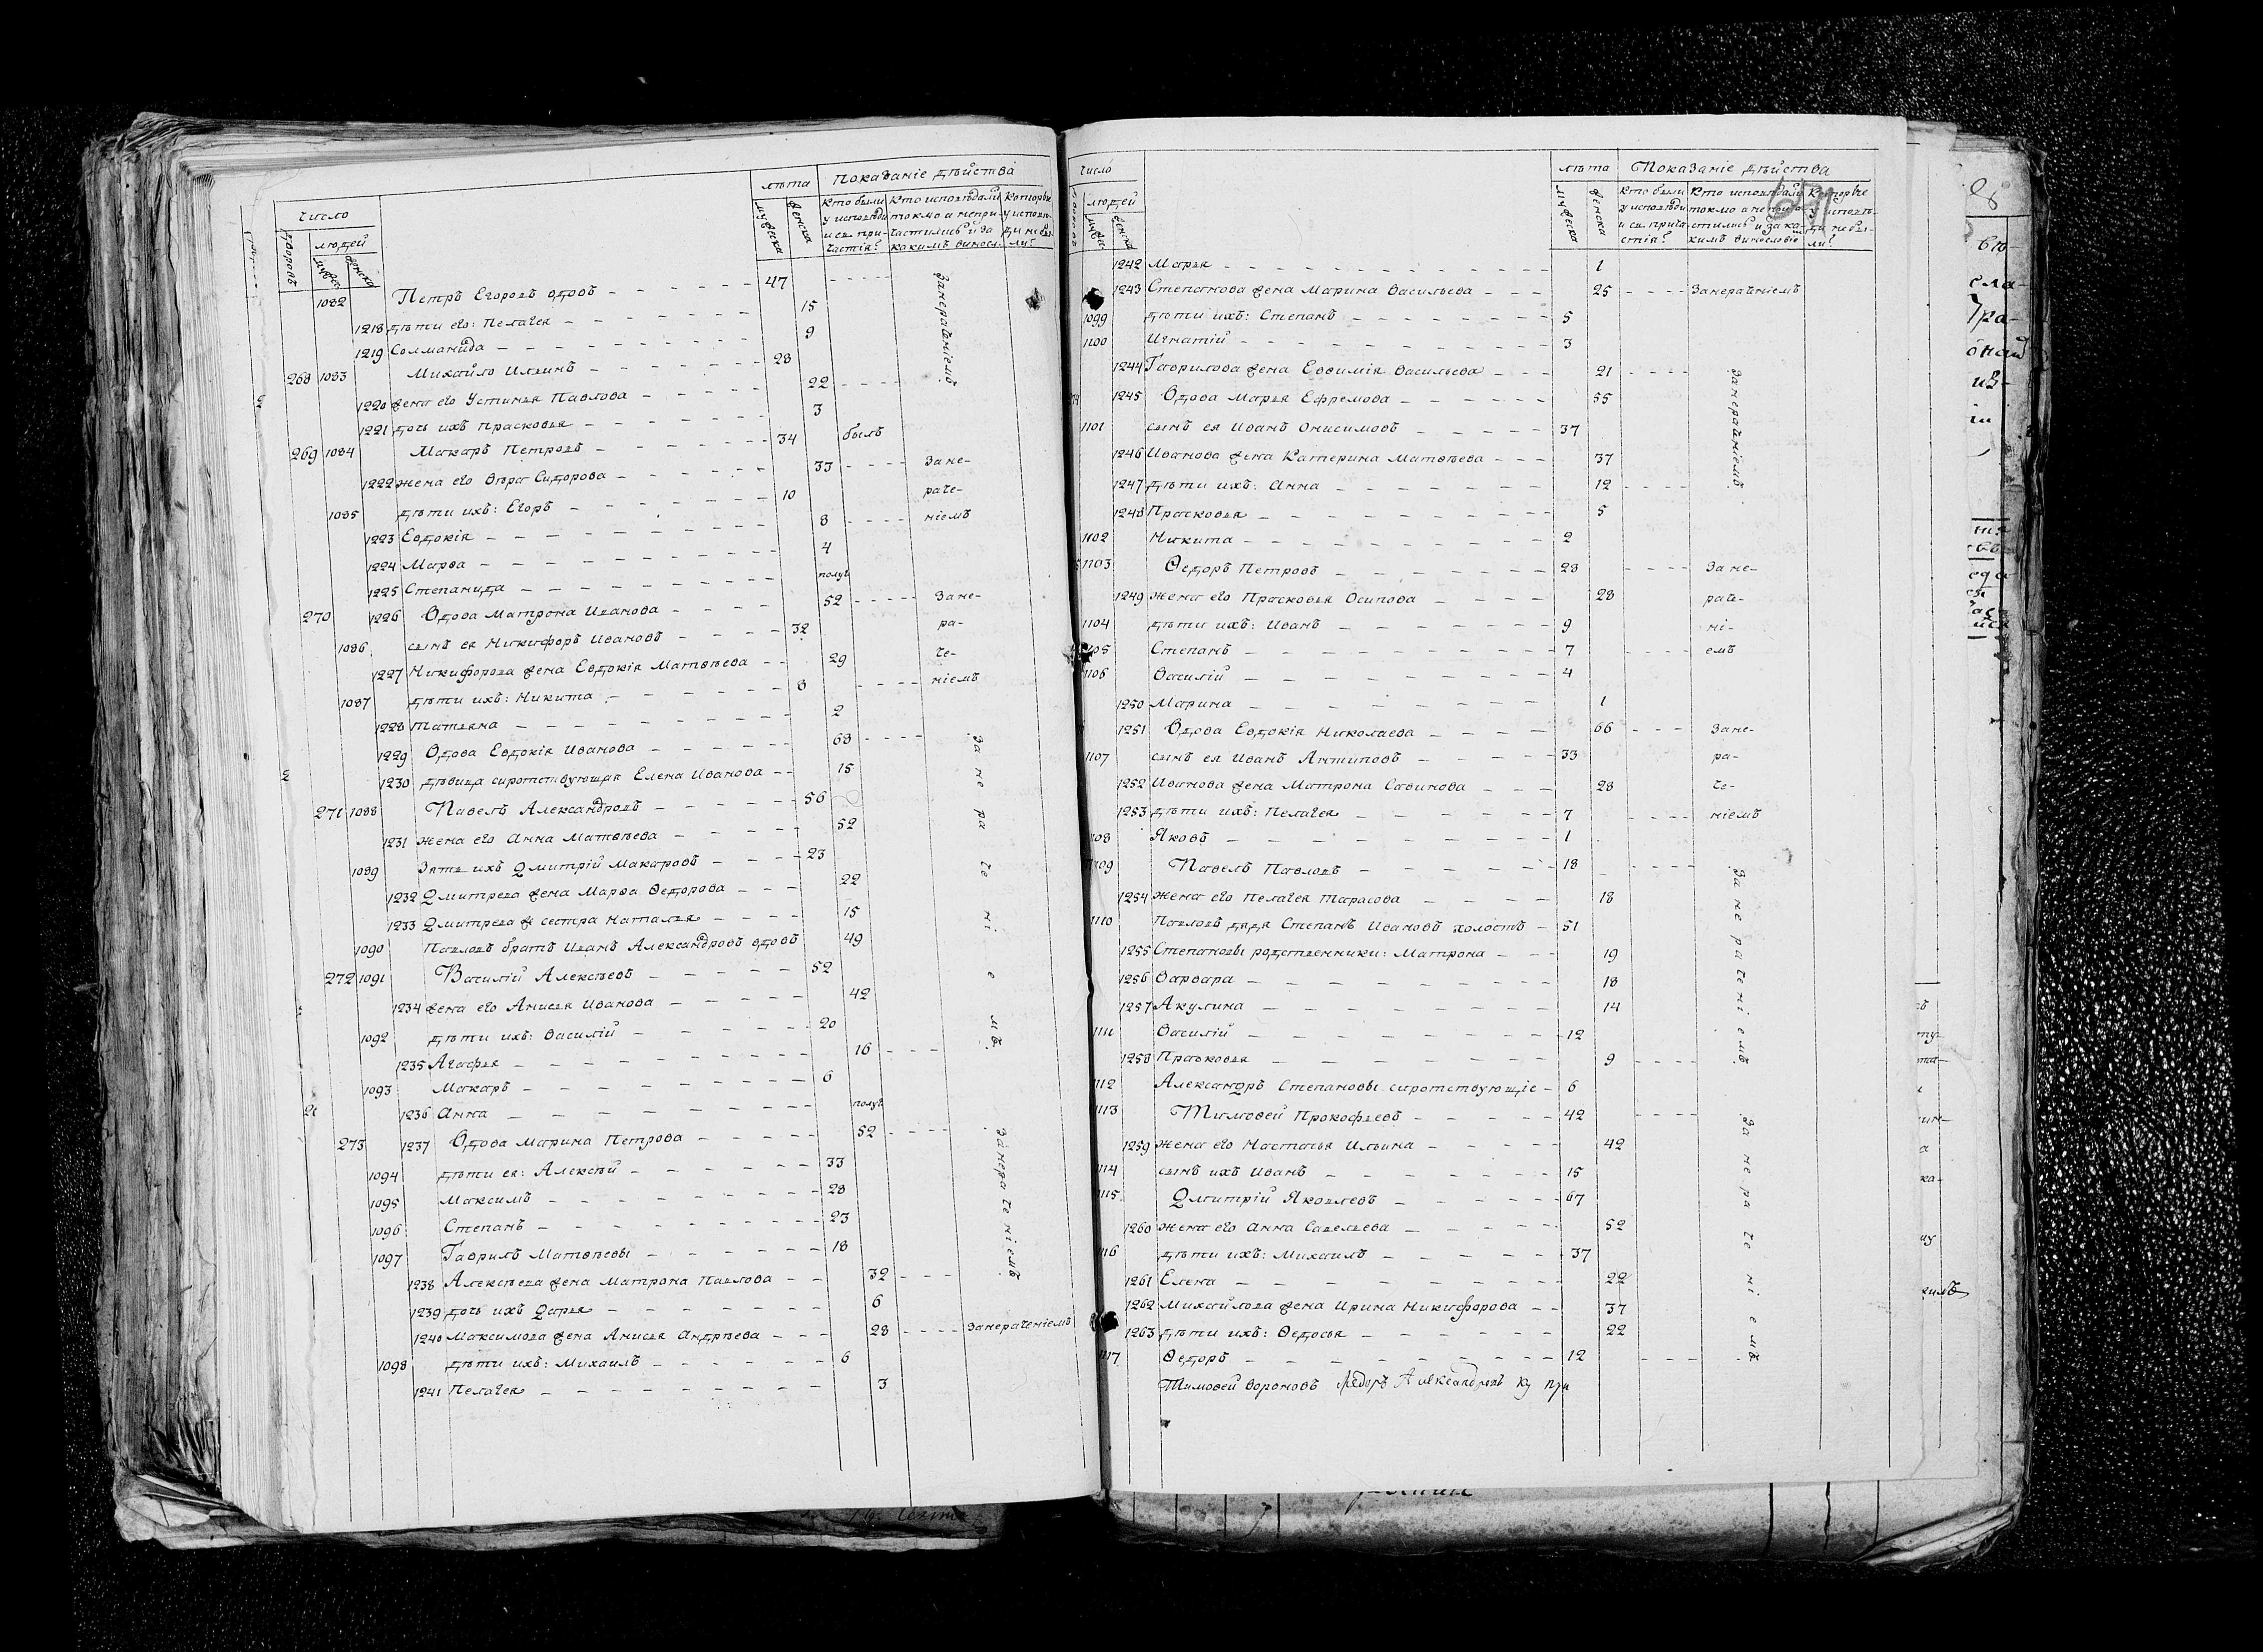 число
лѣта
Показаніе дѣйства
дворовъ
людей
мужеска
женска
Кто были у исповѣди и св. причастія?
Кто исповѣдали токмо а непричастились и за какимъ виносл.
Которые у исповѣди не были?
1082 Петръ Егоровъ вдовъ 47
1218 дѣти его: Пелагея 15
1219 Соломанида 9
268 1083 Михайло Ильинъ 28
1220 жена его Устинья Павлова 22
1221 дочь ихъ Прасковья 3
занераченіемъ
269 1084 Макаръ Петровъ 34 былъ
1222 жена его Вѣра Сидорова 33 Зане-
1085 дѣти ихъ: Егоръ 10 раче-
1223 Евдокія 8 ніемъ
1224 Марѳа 4
1225 Степанида полуг
270 1226 Вдова Матрона Иванова 52 Зане-
1086 сынъ ея Никифоръ Ивановъ 32 ра-
1227 Никифорова жена Евдокія Матвѣева 29 че-
1087 дѣти ихъ: Никита 8 ніемъ
1228 Татьяна 2
1229 Вдова Евдокія Иванова 68
1230 дѣвица сиротствующая Елена Иванова 15
271 1088 Павелъ Александровъ 56
1231 жена его Анна Матвѣева 52
1089 Зять ихъ Дмитрій Макаровъ 23
1232 Дмитрева жена Марѳа Ѳедорова 22
1233 Дмитрева ж сестра Наталья 15
1090 Павловъ братъ Иванъ Александровъ вдовъ 49
272 1091 Василій Алексѣевъ 52
1234 жена его Анисья Иванова 42
1092 дѣти ихъ: Василій 20
1235 Агафья 16
1093 Макаръ 6
1236 Анна полуг
за не ра че ні е мъ
273 1237 Вдова Марина Петрова 52
1094 дѣти ея: Алексѣй 33
1095 Максимъ 28
1096 Степанъ 23
1097 Гаврилъ Матвѣевы 18
1238 Алексѣева жена Матрона Павлова 32
занераченіемъ
1239 дочь ихъ Дарья 6
1240 Максимова жена Анисья Андрѣева 28 Занераченіемъ
1098 дѣти ихъ: Михаилъ 6
1241 Пелагея 3
число
людей
лѣта
Показаніе дѣйства
мужеска
женска
Кто были у исповѣди и св. причастія?
Кто исповѣдали токмо а непричастились и за какимъ винословіе
Которые у исповѣди не были?
1242 Марья 1
1243 Степанова жена Марина Васильева 25 Занераченіемъ
1099 дѣти ихъ: Степанъ 5
1100 Игнатій 3
1244 Гаврилова жена Евѳимія Васильева 21
1245 Вдова Марья Ефремова 55
1101 сынъ ея Иванъ Онисимовъ 37
1246 Иванова жена Катерина Матвѣева 37
1247 дѣти ихъ: Анна 12
занераченіемъ
1248 Прасковья 5
1102 Никита 2
1103 Ѳедоръ Петровъ 28 Зане-
1249 жена его Прасковья Осипова 28 раче-
1104 дѣти ихъ: Иванъ 9 ні-
1105 Степанъ 7 емъ
1106 Василій 4
1250 Марина 1
1251 Вдова Евдокія Николаева 66 Зане-
1107 сынъ ея Иванъ Антиповъ 33 ра-
1252 Иванова жена Матрона Савинова 28 че-
1253 дѣти ихъ: Пелагея 7 ніемъ
1108 Яковъ 1
1109 Павелъ Павловъ 18
1254 жена его Пелагея Тарасова 18
1110 Павловъ дядя Степанъ Ивановъ холостъ 51
1255 Степановы родственники: Матрона 19
1256 Варвара 18
1257 Акулина 14
1111 Василій 12
1258 Прасковья 9
за не ра че ні е мъ
1112 Александръ Степановы сиротствующіе 6
1113 Тимоѳей Прокофьевъ 42
1259 жена его Настасья Ильина 42
1114 сынъ ихъ Иванъ 15
1115 Дмитрій Яковлевъ 67
1260 жена его Анна Савельева 52
1116 дѣти ихъ: Михаилъ 37
1261 Елена 22
1262 Михайлова жена Ирина Никифорова 37
1263 дѣти ихъ: Ѳедосья 22
1117 Ѳедоръ 12
за не ра че ні е мъ
Тимоѳей Вороновъ Ѳедоръ Александровъ